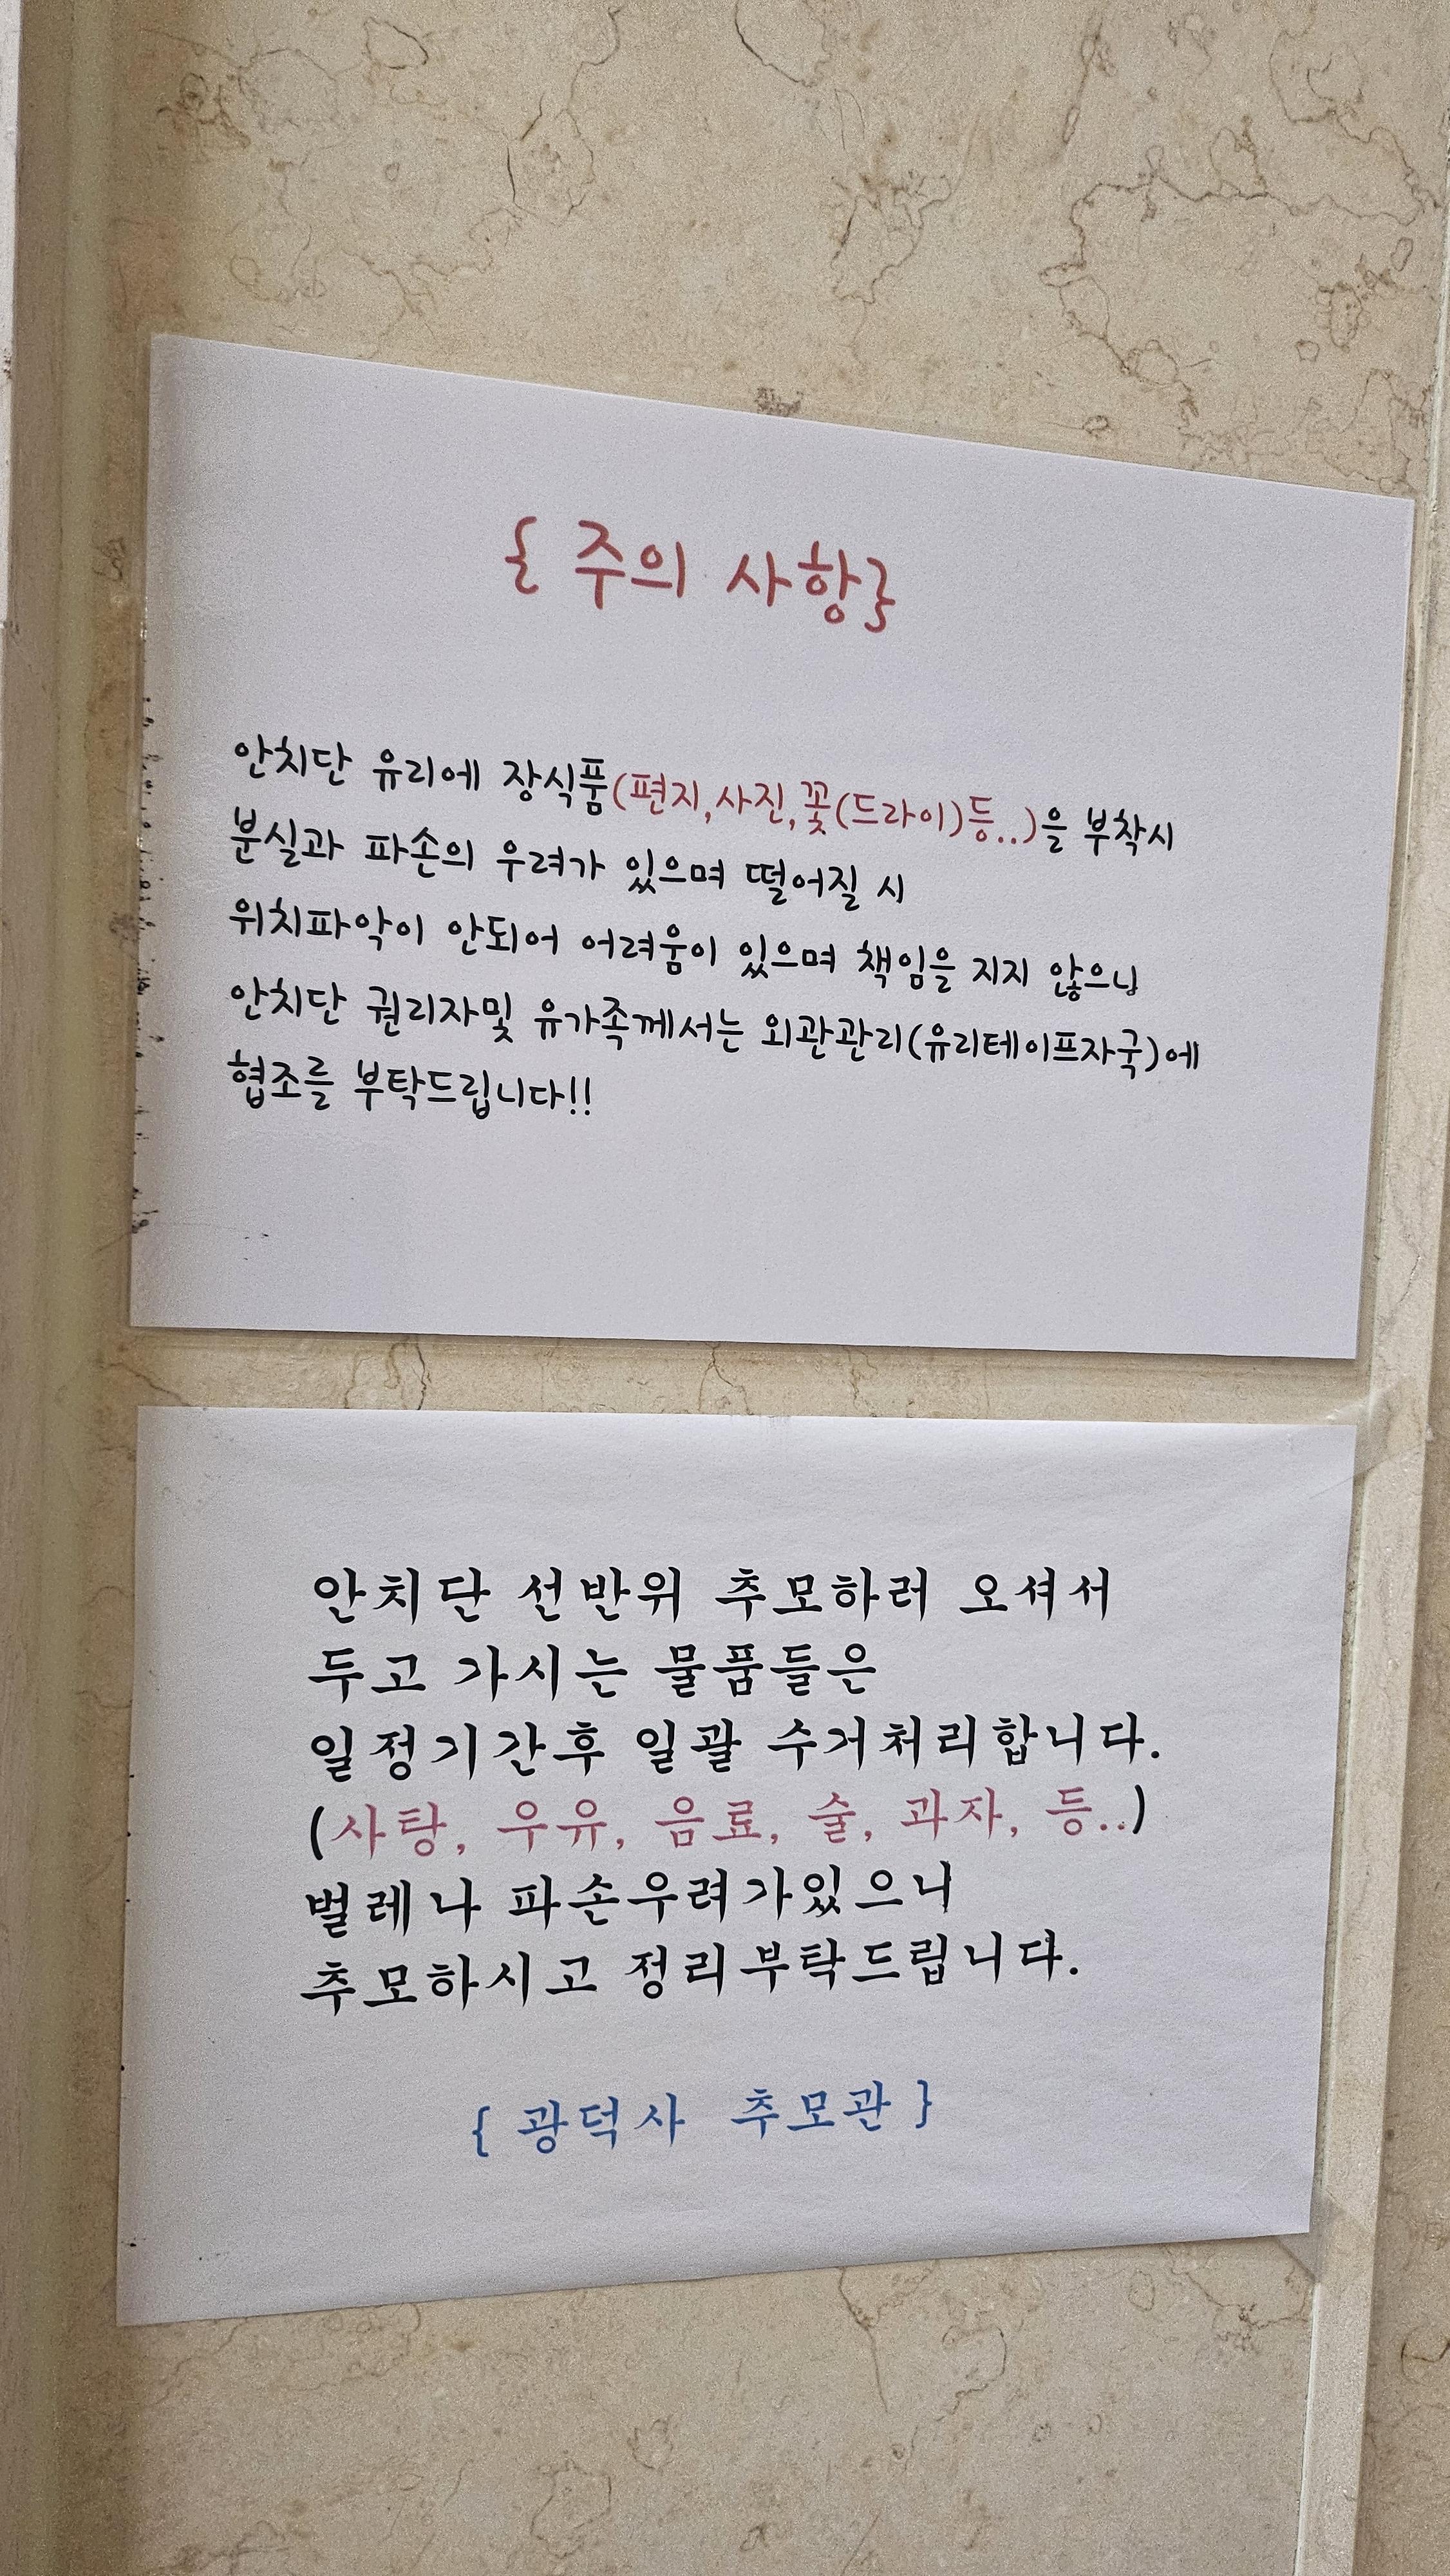 { 주의 사항}
안치단 유리에 장식품(편지,사진,꽃(드라이)등..)을 부착시
분실과 파손의 우려가 있으며 떨어질 시
위치파악이 안되어 어려움이 있으며 책임을 지지 않으니
안치단 권리자및 유가족께서는 외관관리(유리테이프자국)에
협조를 부탁드립니다!!
안치단 선반위 추모하러 오셔서
두고 가시는 물품들은
일정기간후 일괄 수거처리합니다.
(사탕, 우유, 음료, 술, 과자, 등..)
벌레나 파손우려가있으니
추모하시고 정리부탁드립니다.
{ 광덕사 추모관 }